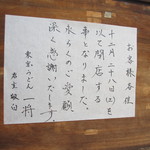 お客様各位
十二月二十八日(土)を
以て閉店する
事となりました。
永らくのご愛顧
深く感謝いたします
東京うどん 一将
店主敬白